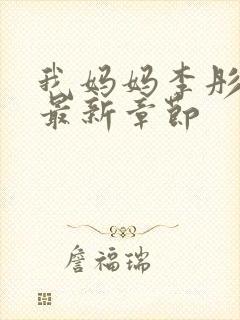 我妈妈李彤
最新章节
詹福瑞